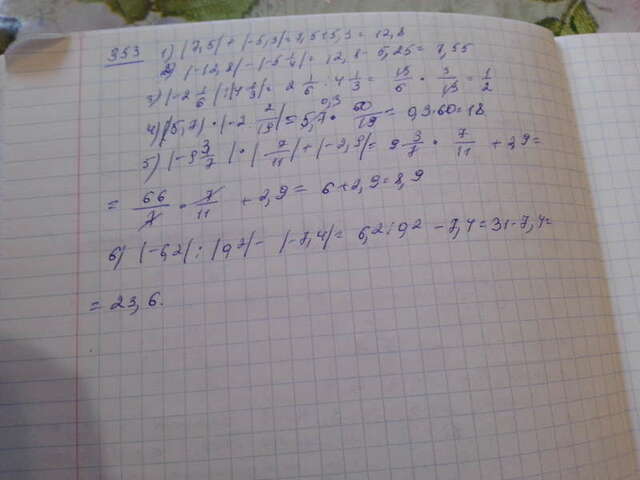 353 1) |7,5| + |-5,3| = 7,5 + 5,3 = 12,8
2) |-12,8| - |-5 1/4| = 12,8 - 5,25 = 7,55
3) |-2 1/6| : |4 1/3| = 2 1/6 : 4 1/3 = 13/6 · 3/13 = 1/2
4) |5,7| · |-2 2/19| = 5,7 · 0,3 60/19 = 0,3·60 = 18
5) |-9 3/7| · |-7/11| + |-2,9| = 9 3/7 · 7/11 + 2,9 =
= 66/7 · 7/11 + 2,9 = 6 + 2,9 = 8,9
6) |-6,2| : |0,2| - |-7,4| = 6,2 : 0,2 - 7,4 = 31 - 7,4 =
= 23,6.